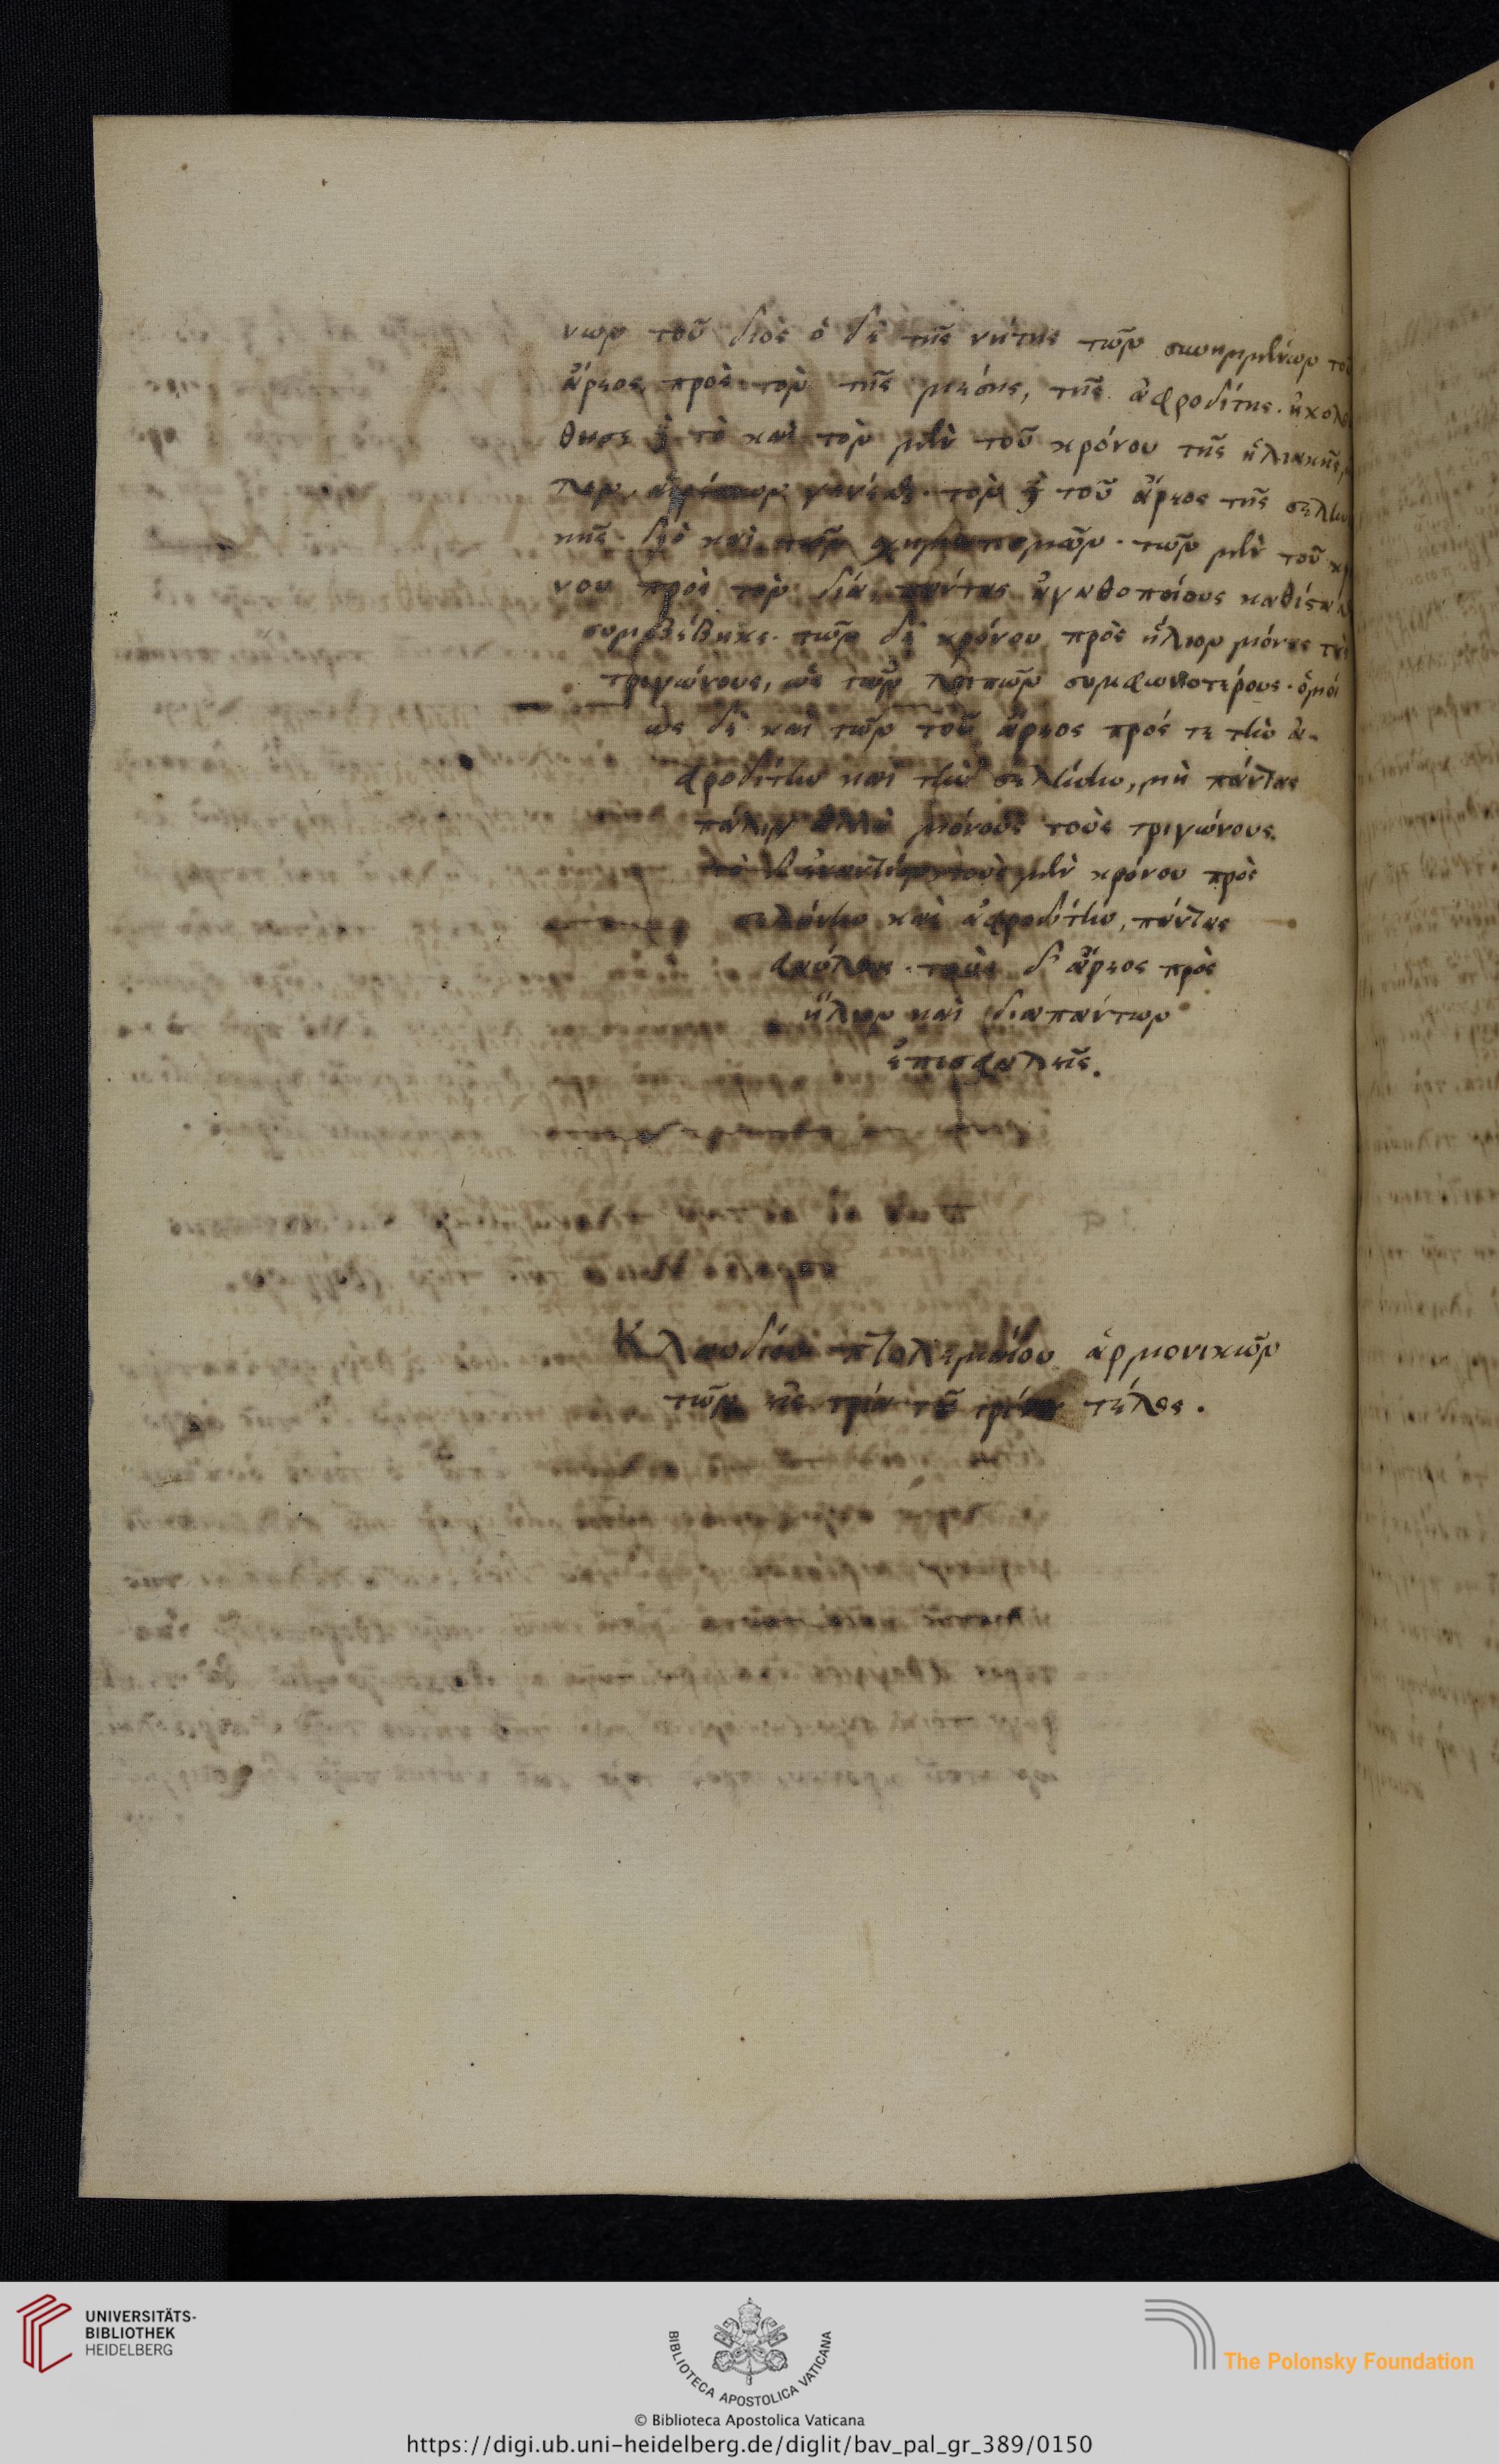 νων τοῦ διὸς ὁ δὲ τῆς νήτης τῶν συνημμένων τοῦ
ἄρεος πρὸς τὸν τῆς μέσης, τῆς ἀφροδίτης. ἠκολού
θησε δὲ τὸ καὶ τὸν μὲν τοῦ κρόνου τῆς ἡλιακῆς
γενέσθαι. τὸν δὲ τοῦ ἄρεος τῆς σελην
κῆς. διὸ καὶ τῶν σχηματισμῶν. τῶν μὲν τοῦ κρ
νου πρὸς τὸν δία, πάντας ἀγαθοποιοὺς καθίστα
συμβέβηκε. τῶν δὲ κρόνου πρὸς ἥλιον μόνους τοὺς
τριγώνους, ὡς τῶν λοιπῶν συμφωνοτέρους. ὁμοί
ως δὲ καὶ τῶν τοῦ ἄρεος πρός τε τὴν ἀ-
φροδίτην καὶ τὴν σελήνην, μὴ πάντας
πάλιν ἀλλὰ μόνους τοὺς τριγώνους.
τὸ δ' ἐναντίον τοὺς μὲν κρόνου πρὸς
σελήνην καὶ ἀφροδίτην, πάντας
φαύλους. τοὺς δ' ἄρεος πρὸς
ἥλιον καὶ δία πάντων
ἐπισφαλεῖς.
Κλαυδίου πτολεμαίου ἁρμονικῶν
τῶν εἰς τρία τοῦ τρίτου τέλος.
UNIVERSITÄTS-
BIBLIOTHEK
HEIDELBERG
BIBLIOTECA APOSTOLICA VATICANA
The Polonsky Foundation
© Biblioteca Apostolica Vaticana
https://digi.ub.uni-heidelberg.de/diglit/bav_pal_gr_389/0150